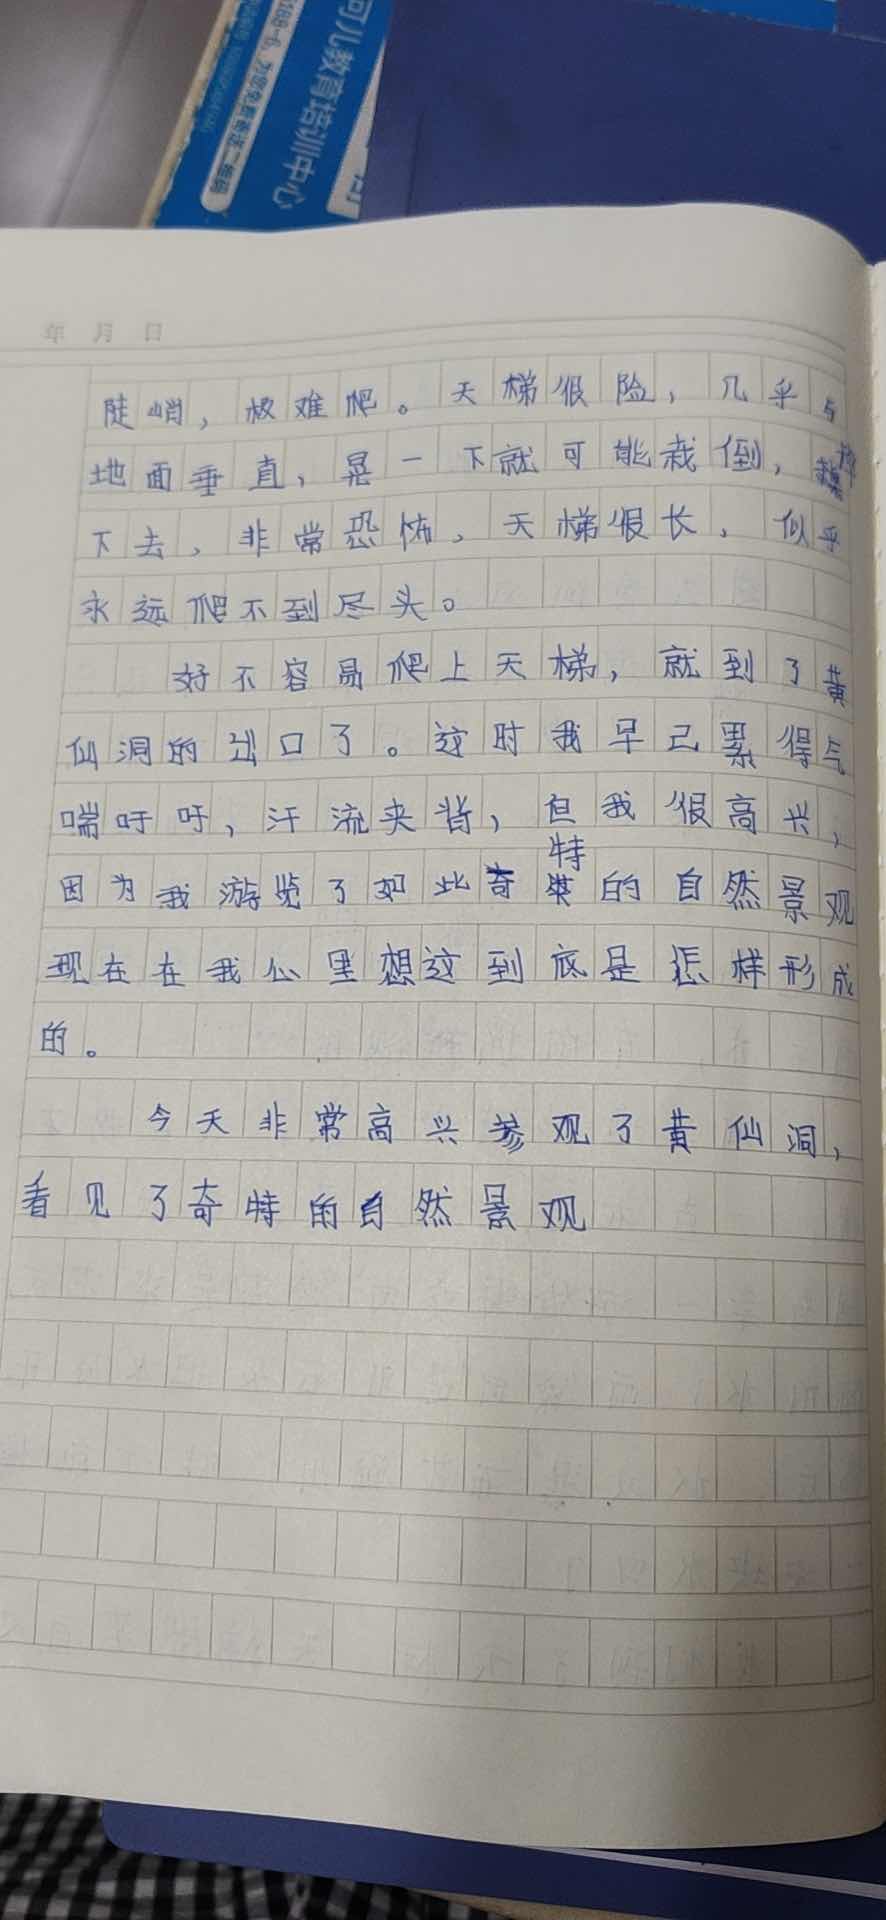 可儿教育培训中心
年 月 日
陡峭，极难爬。天梯很险，几乎与
地面垂直，晃一下就可能栽倒，摔
下去，非常恐怖，天梯很长，似乎
永远爬不到尽头。
好不容易爬上天梯，就到了黄
仙洞的出口了。这时我早已累得气
喘吁吁，汗流夹背，但我很高兴，
因为我游览了如此奇特的自然景观
现在在我心里想这到底是怎样形成
的。
今天非常高兴参观了黄仙洞，
看见了奇特的自然景观